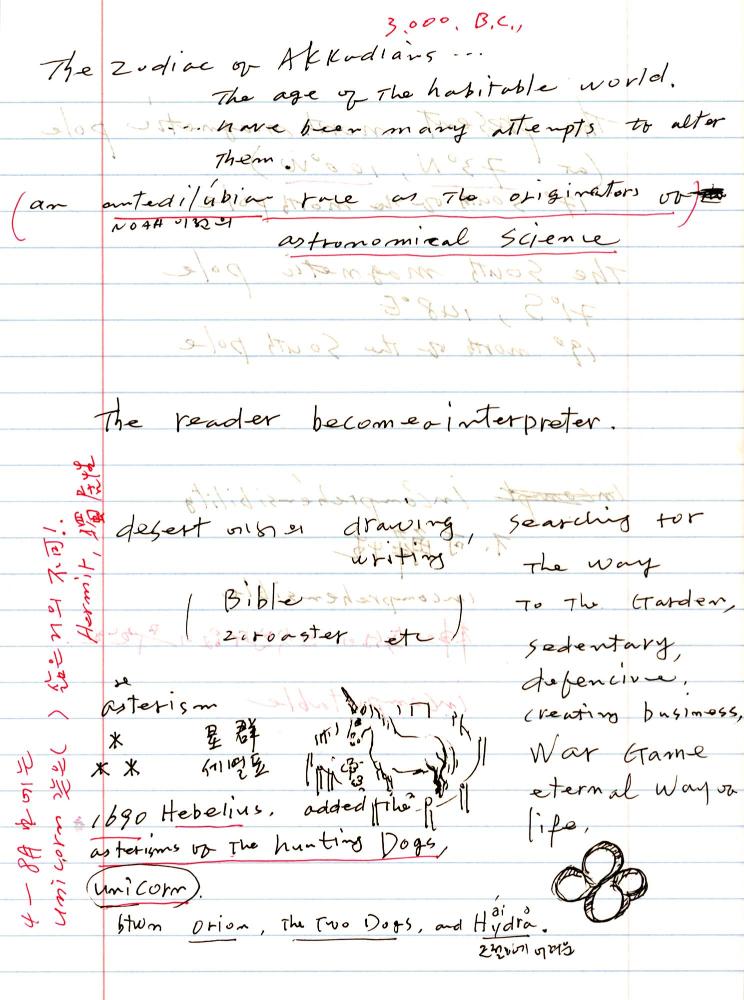 3,000. B.C.,
The zodiac of Akkadians ...
The age of the habitable world.
... have been many attempts to alter
them.
(an antedilúbian race as the originators of)
NOAH 이전의
astronomical science
The reader become a interpreter.
desert 에서의 drawing,
writing
(Bible
ziroaster etc)
searching for
the way
to the Garden,
sedentary,
defencive,
creating business,
War Game
eternal way of
life,
asterism
* 星群
* * 세별표
1690 Hebelius, added the
asterisms of the hunting Dogs,
unicorn.
btwn Orion, the Two Dogs, and Hydra.
ái
Hermit,
4 – 8月
unicorn 같은 ( ) 不可!